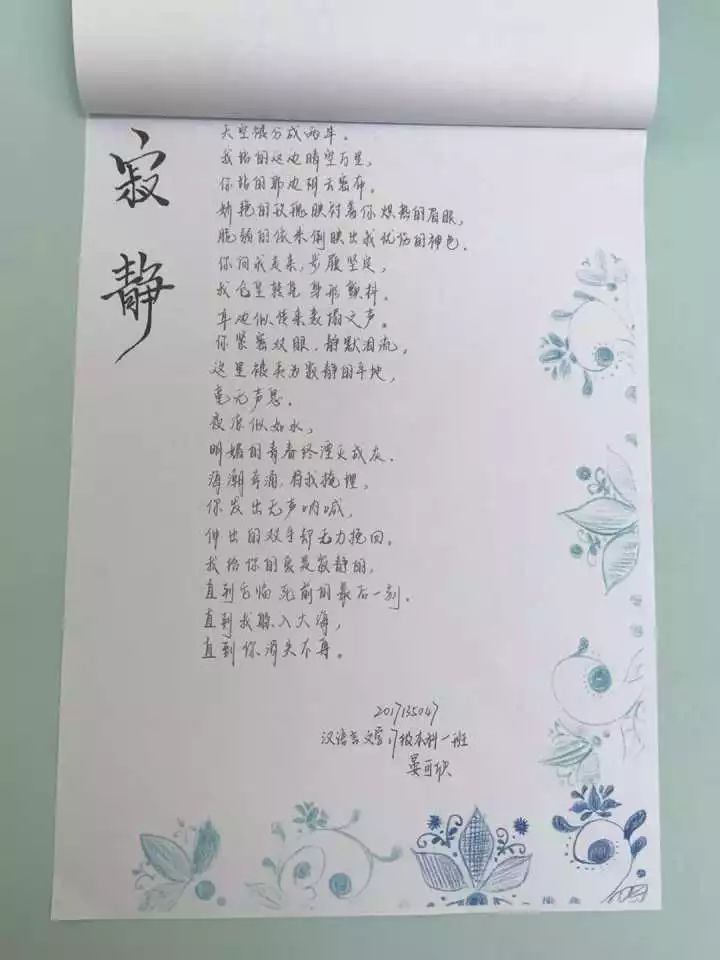 寂静
天空被分成两半。
我站的这边晴空万里，
你站的那边阴云密布。
娇艳的玫瑰映衬着你炽热的眉眼，
脆弱的依米倒映出我忧伤的神色。
你向我走来，步履坚定，
我仓皇转身 身形颤抖。
耳边似传来轰塌之声。
你紧密双眼，静默泪流，
这里被夷为寂静的平地，
毫无声息。
夜凉似如水，
明媚的青春终湮灭成灰。
海潮奔涌，将我掩埋，
你发出无声呐喊，
伸出的双手却无力挽回。
我给你的爱是寂静的，
直到它临死前的最后一刻。
直到我躲入大海，
直到你消失不再。
201713504
汉语言文学17级本科一班
晏可欣